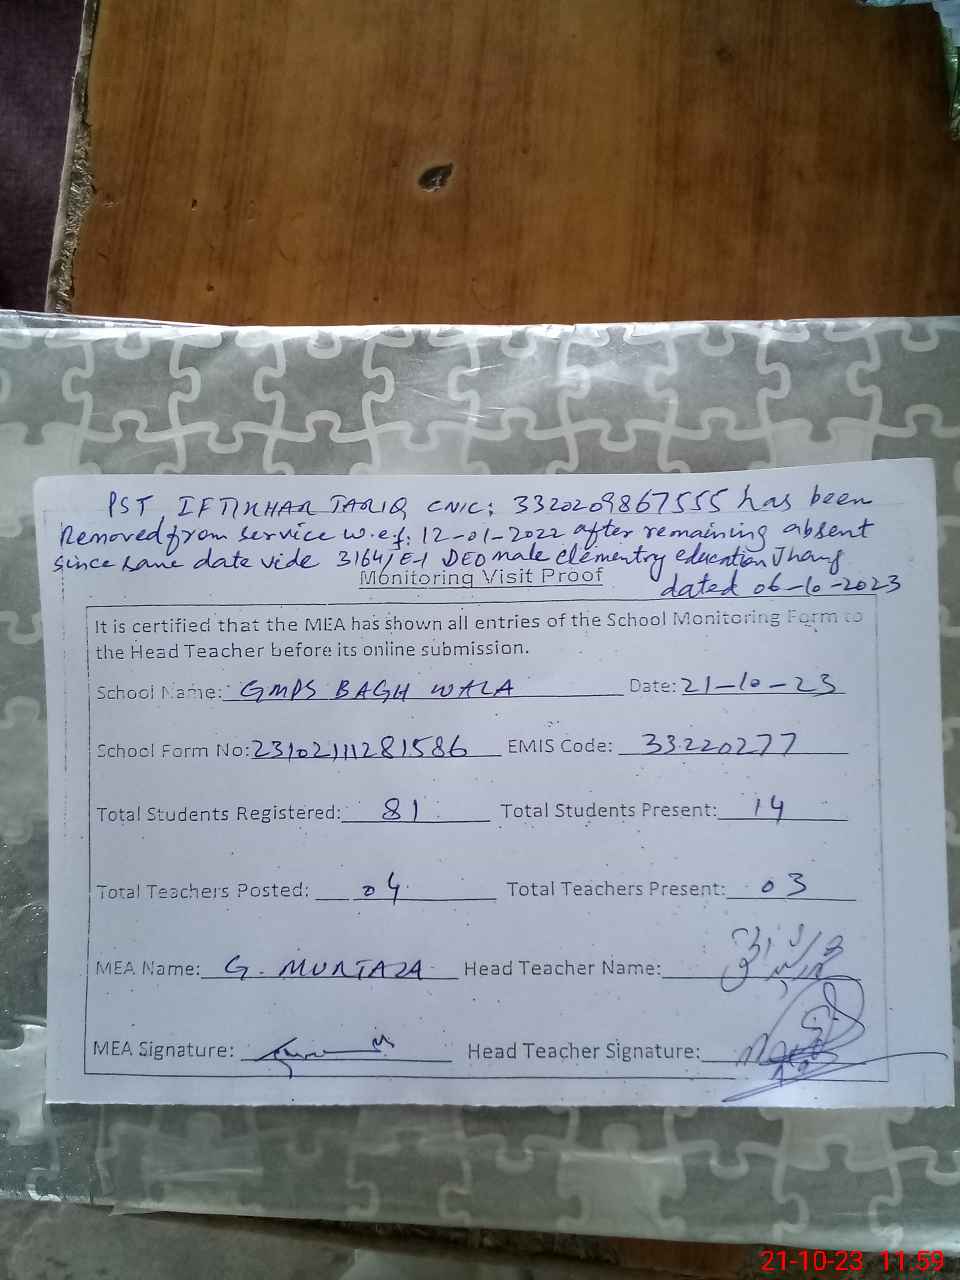 PST IFTIKHAR TARIQ CNIC: 3320209867555 has been
Removed from service w.e.f: 12-01-2022 after remaining absent
since same date vide 3164/E-1 DEO male elementry education Jhang
dated 06-10-2023
Monitoring Visit Proof
It is certified that the MEA has shown all entries of the School Monitoring Form to
the Head Teacher before its online submission.
School Name: GMPS BAGH WALA Date: 21-10-23
School Form No: 23102111281586 EMIS Code: 33220277
Total Students Registered: 81 Total Students Present: 14
Total Teachers Posted: 04 Total Teachers Present: 03
MEA Name: G. MURTAZA Head Teacher Name:
MEA Signature: Head Teacher Signature:
21-10-23 11:59